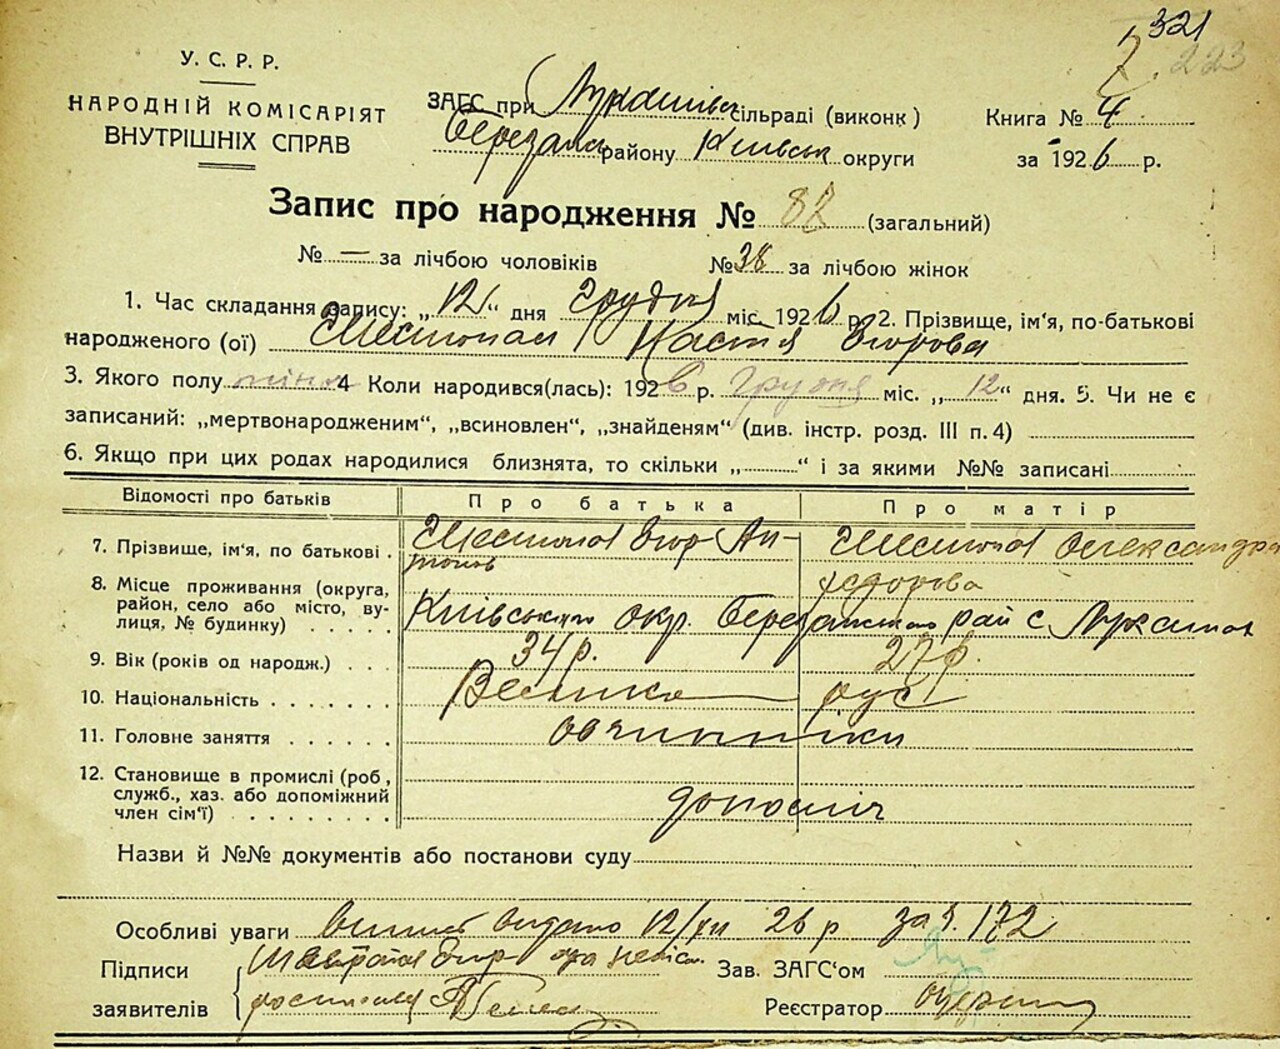 321
223
У. С. Р. Р.
НАРОДНІЙ КОМІСАРІЯТ
ВНУТРІШНІХ СПРАВ
ЗАГС при сільраді (виконк)
району Київськ округи
Книга № 4
за 1926 р.
Запис про народження № 82 (загальний)
№ — за лічбою чоловіків № 38 за лічбою жінок
1. Час складання запису: „12“ дня Грудня міс. 1926 р. 2. Прізвище, ім'я, по-батькові
народженого (ої) Шестопал Настя Єгорова
3. Якого полу жіноч 4 Коли народився(лась): 1926 р. Грудня міс. „12“ дня. 5. Чи не є
записаний: „мертвонародженим“, „всиновлен“, „знайденям“ (див. інстр. розд. III п. 4)
6. Якщо при цих родах народилися близнята, то скільки „ “ і за якими №№ записані
Відомості про батьків Про батька Про матір
7. Прізвище, ім'я, по батькові . Шестопал Єгор Ан-
тонов
Шестопал Олександра
Федорова
8. Місце проживання (округа,
район, село або місто, ву-
лиця, № будинку) . . . . . Київського окр. Березанського рай с
9. Вік (років од народж.) . . . 34 р. 27 р.
10. Національність . . . . . . . рус
11. Головне заняття . . . . . .
12. Становище в промислі (роб,
служб., хаз. або допоміжний
член сім'ї) . . . . . . . . допоміч
Назви й №№ документів або постанови суду
Особливі уваги видано 12/XII 26 р за № 172
Підписи
заявителів
Єгор
Зав. ЗАГС'ом
Реєстратор